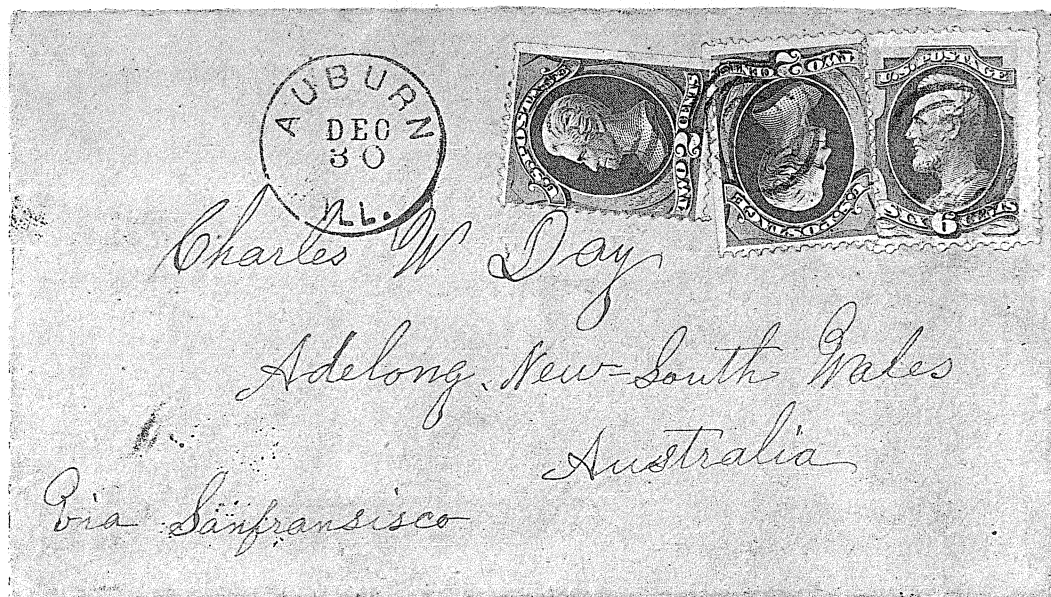 AUBURN
DEC
30
ILL.
U.S. POSTAGE
TWO 2 CENTS
U.S. POSTAGE
TWO 2 CENTS
U.S. POSTAGE
SIX 6 CENTS
Charles W Day
Adelong, New=South Wales
Australia
Via Sanfransisco